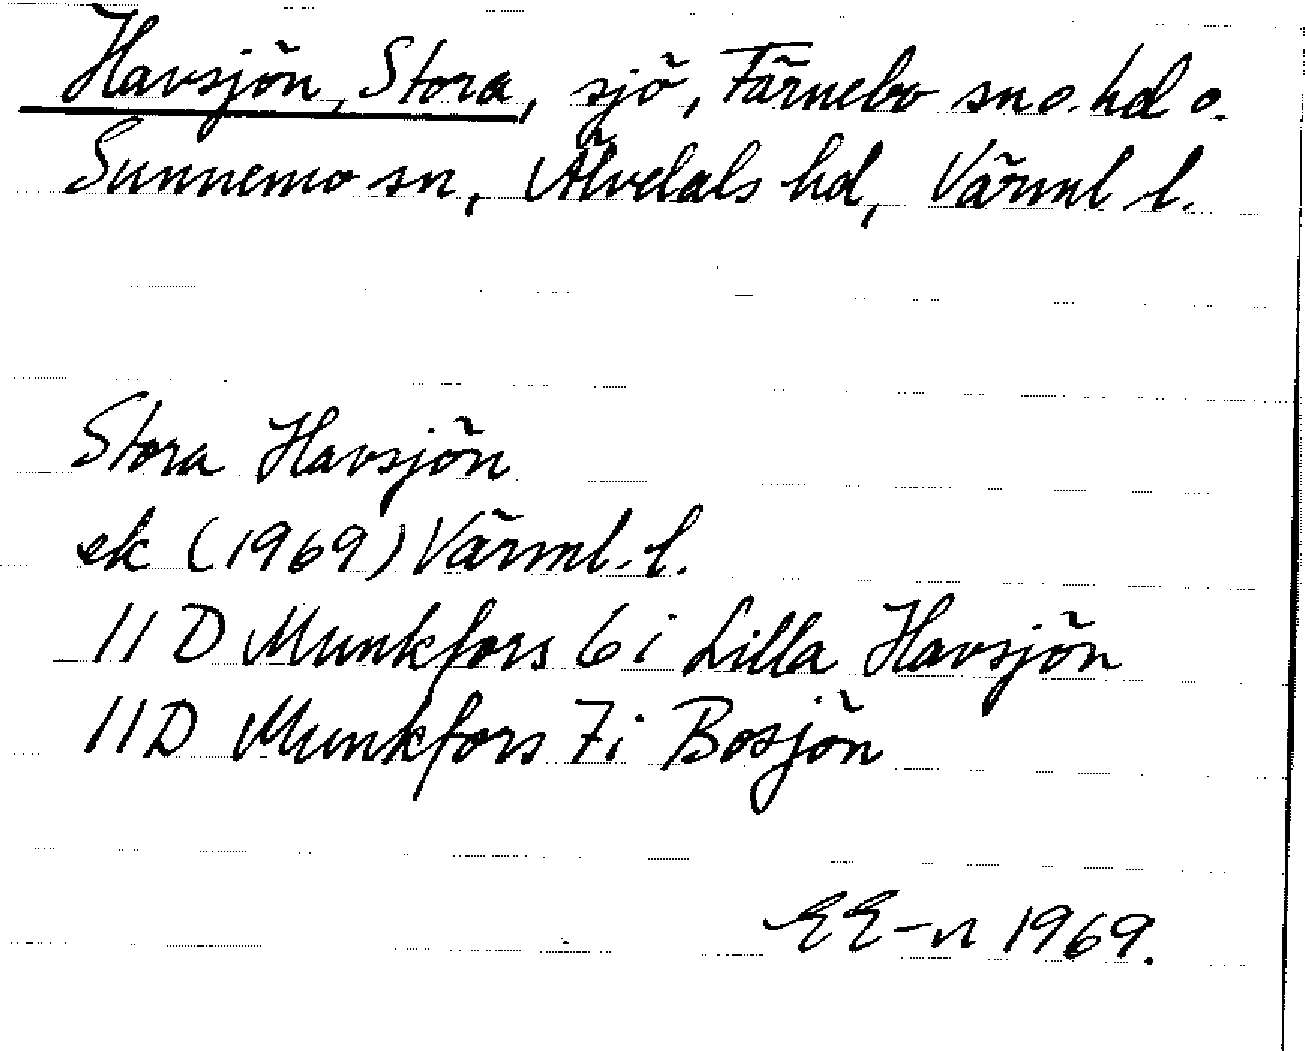 Havsjön, Stora, sjö, Färnebo sn o. hd o.
Sunnemo sn, Älvdals hd, Värml l.
Stora Havsjön
ek (1969) Värml. l.
11 D Munkfors 6 i Lilla Havsjön
11 D Munkfors 7 i Bosjön
EE-n 1969.